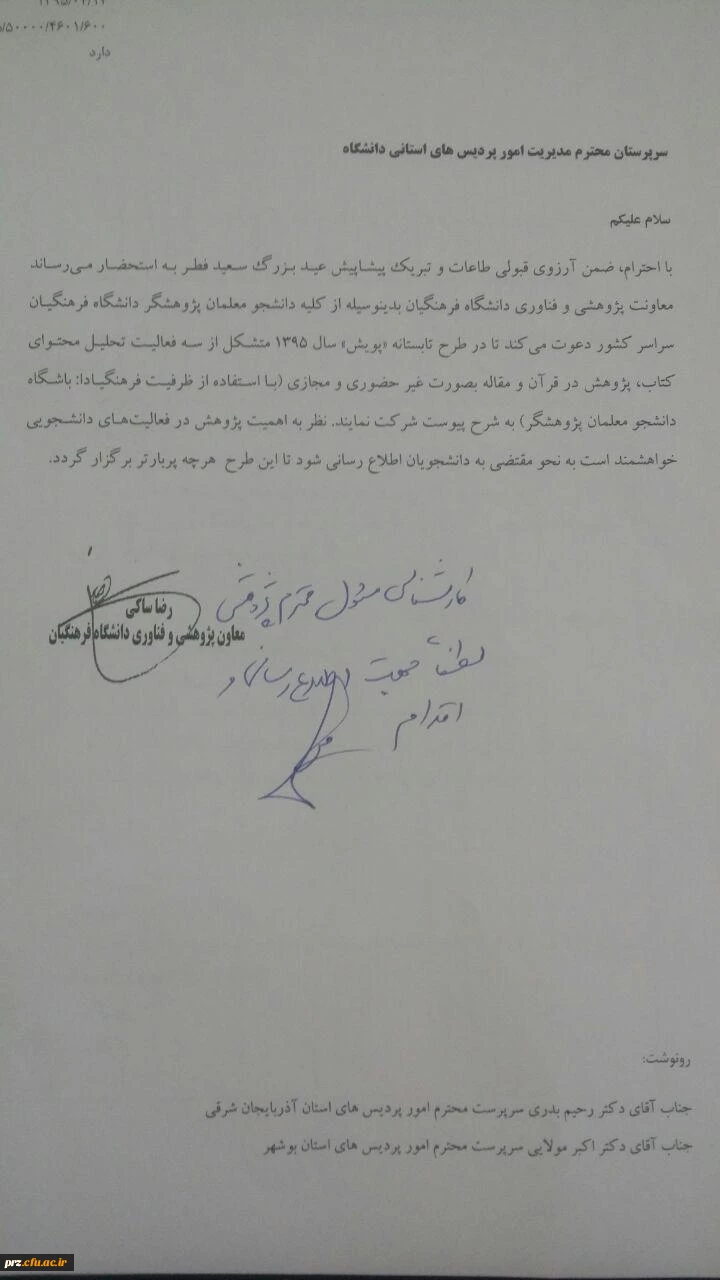 ۶۰۰/۴۶۰۱/۵۰۰۰۰/
دارد
سرپرستان محترم مدیریت امور پردیس های استانی دانشگاه
سلام علیکم
با احترام، ضمن آرزوی قبولی طاعات و تبریک پیشاپیش عید بزرگ سعید فطر به استحضار می‌رساند
معاونت پژوهشی و فناوری دانشگاه فرهنگیان بدینوسیله از کلیه دانشجو معلمان پژوهشگر دانشگاه فرهنگیان
سراسر کشور دعوت می‌کند تا در طرح تابستانه «پویش» سال ۱۳۹۵ متشکل از سه فعالیت تحلیل محتوای
کتاب، پژوهش در قرآن و مقاله بصورت غیر حضوری و مجازی (با استفاده از ظرفیت فرهنگیادا: باشگاه
دانشجو معلمان پژوهشگر) به شرح پیوست شرکت نمایند. نظر به اهمیت پژوهش در فعالیت‌های دانشجویی
خواهشمند است به نحو مقتضی به دانشجویان اطلاع رسانی شود تا این طرح هرچه پربارتر برگزار گردد.
رضا ساکی
معاون پژوهشی و فناوری دانشگاه فرهنگیان
کارشناس مسئول محترم پژوهشی
لطفاً جهت اطلاع رسانی و
اقدام
رونوشت:
جناب آقای دکتر رحیم بدری سرپرست محترم امور پردیس های استان آذربایجان شرقی
جناب آقای دکتر اکبر مولایی سرپرست محترم امور پردیس های استان بوشهر
prz.cfu.ac.ir